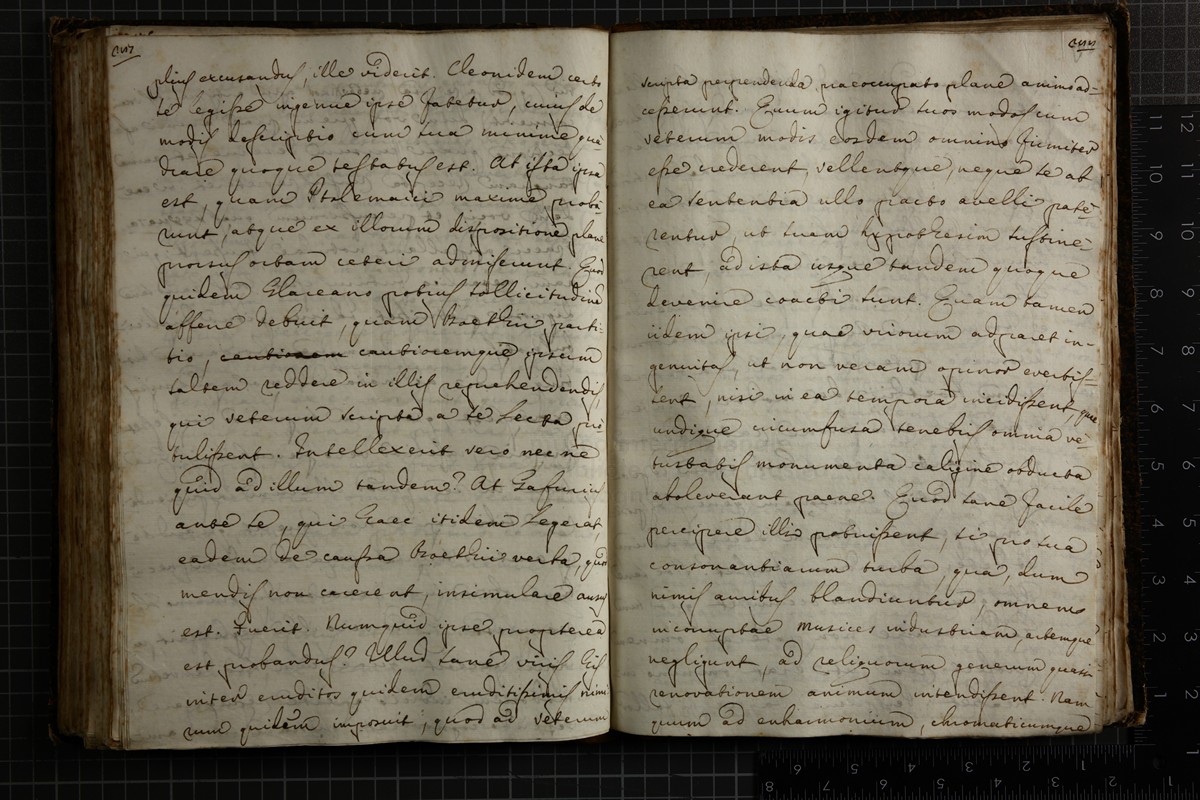 plius excusandus, ille viderit. Cleonidem certe
te legisse ingenue ipse fateris, cuius de
modis descriptio cum tua minime qua-
drare quoque testatus est. At ista ipsa
est, quam Ptolemaici maxime proba-
runt, atque ex illorum dispositione plane
prorsus orbam ceteri admiserunt. Quod
quidem Glareano potius sollicitudinem
afferre debuit, quam Boethii parti-
bus, cautiorem cautioremque ipsum
saltem reddere in illis reprehendendis
qui veterum scripta a te lecta per-
tulissent. Intellexerit vero nec ne
quid ad illum tandem? At Gafurius
ante te, qui haec itidem legerat,
eadem de caussa Boethii verba, quo
mendis non carerent, insimulare ausus
est. Fuerit. Numquid ipse propterea
est probandus? Illud sane viris his
inter eruditos quidem eruditissimis nimi-
rum quidem imposuit, quod ad veterum
scripta perpendenda praeoccupato plane animo ad-
cesserunt. Quum igitur tuos modos cum
veterum modis eosdem omnino firmiter
esse crederent, vellentque, neque se ab
ea sententia ullo pacto avelli pate-
rentur, ut suam hypothesim sustine-
rent, ad ista usque tandem quoque
devenire coacti sunt. Quam tamen
iidem ipsi, quae virorum adparet in-
genuitas, ut non veram opinor evertis-
sent, nisi in ea tempora incidissent, quae
undique circumfusa tenebris omnia ve-
tustatis monumenta caligine obducta
aboleverant paene. Quod sane facile
percipere illis potuissent, si pro sua
consonantiarum turba, qua, dum
nimis auribus blandiuntur, omnem
incorruptae musices industriam, artemque
negligunt, ad reliquorum generum quasi
renovationem animum intendissent. Nam
quum ad enharmonium, chromaticumque